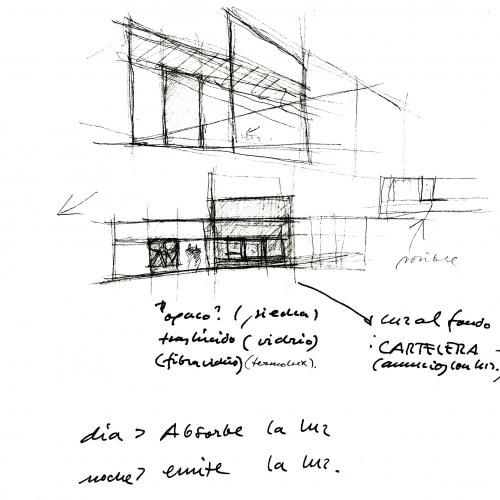 posible
"opaco? (piedra)
traslucido (vidrio)
(fibravidrio) (termolux).
luz al fondo
: CARTELERA -
(anuncios con luz).
día > Absorbe la luz
noche > emite la luz.